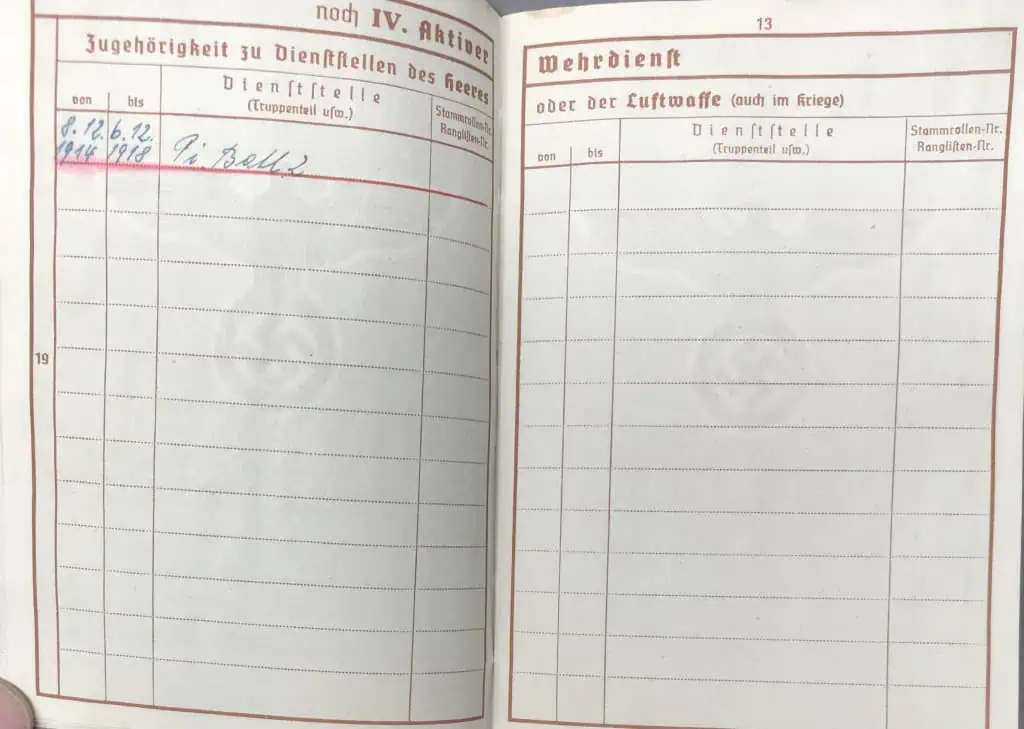 noch IV. Aktiver
Zugehörigkeit zu Dienststellen des Heeres
von
bis
Dienststelle
(Truppenteil usw.)
Stammrollen-Nr.
Ranglisten-Nr.
8.12. 6.12.
1914 1918 Pi. Batl. 2
19
13
Wehrdienst
oder der Luftwaffe (auch im Kriege)
von
bis
Dienststelle
(Truppenteil usw.)
Stammrollen-Nr.
Ranglisten-Nr.